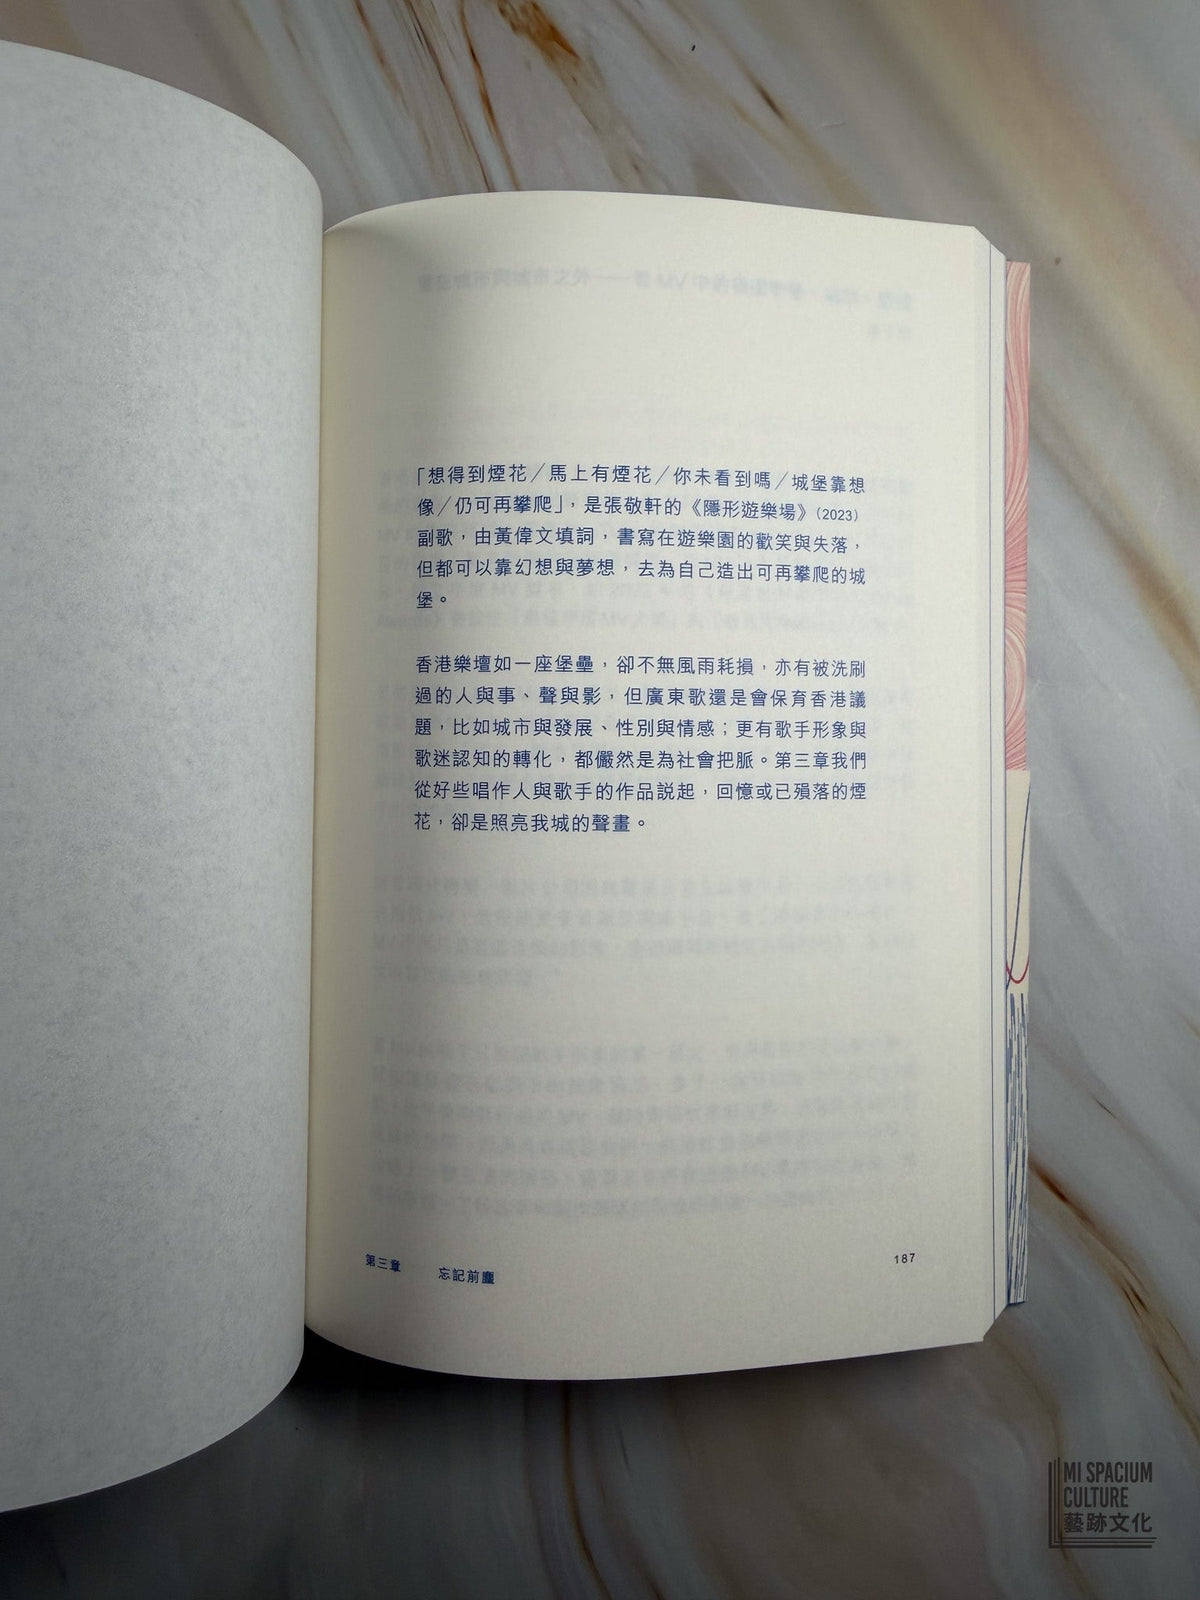 「想得到煙花／馬上有煙花／你未看到嗎／城堡靠想
像／仍可再攀爬」，是張敬軒的《隱形遊樂場》(2023)
副歌，由黃偉文填詞，書寫在遊樂園的歡笑與失落，
但都可以靠幻想與夢想，去為自己造出可再攀爬的城
堡。
香港樂壇如一座堡壘，卻不無風雨耗損，亦有被洗刷
過的人與事、聲與影，但廣東歌還是會保育香港議
題，比如城市與發展、性別與情感；更有歌手形象與
歌迷認知的轉化，都儼然是為社會把脈。第三章我們
從好些唱作人與歌手的作品説起，回憶或已殞落的煙
花，卻是照亮我城的聲畫。
第三章 忘記前塵
187
MI SPACIUM
CULTURE
藝跡文化